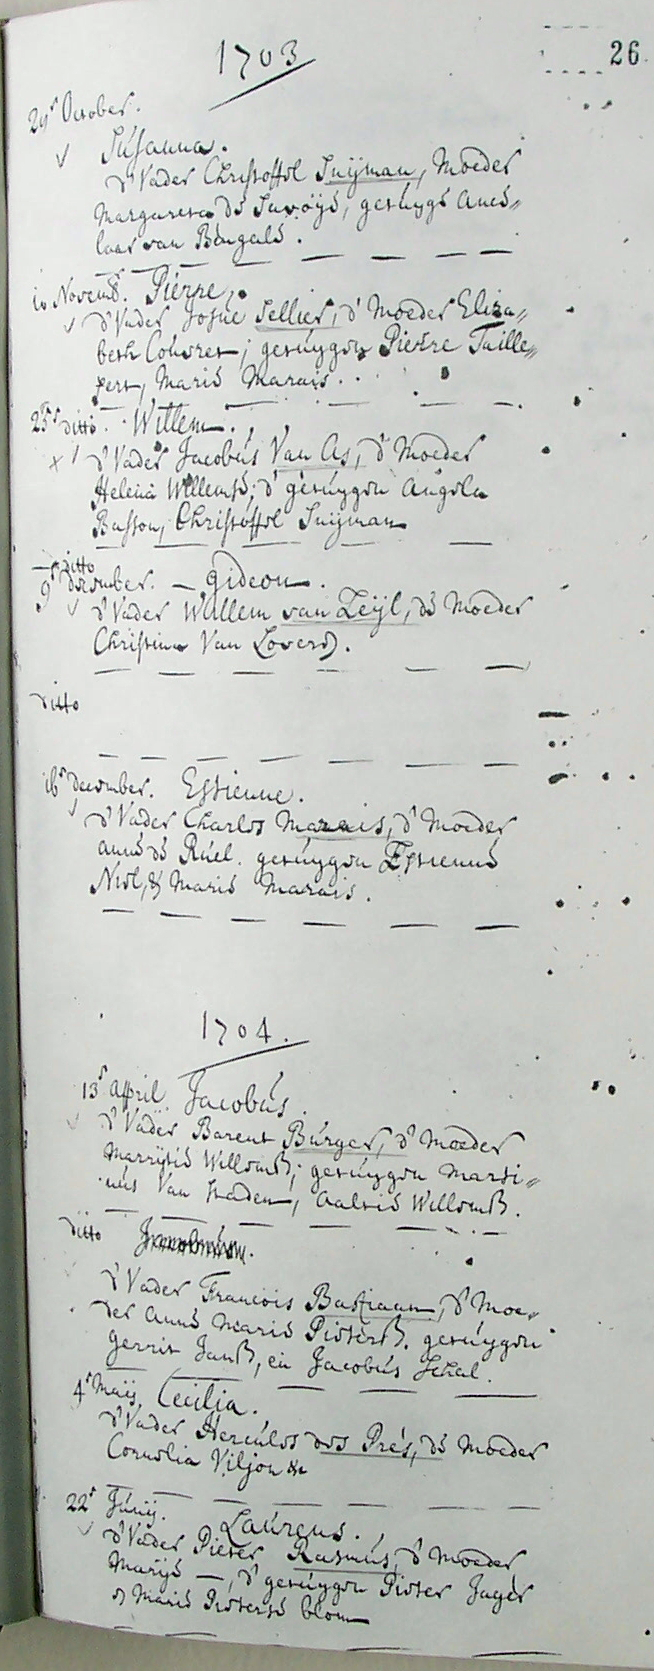 1703
26
29r October.
Susanna.
d' Vader Christoffel Snijman, Moeder
Margareta de Savoijé, getuyge Anes=
laar van Bengale.
10 Novemb. Pierre.
d' Vader Josue Sellier, d' Moeder Eliza=
beth Couvret; getuygen Pierre Taille=
fert, Marie Marais.
25r ditto. Willem.
d' Vader Jacobus Van As, d' Moeder
Helena Willemse; d' getuygen Angela
Basson, Christoffel Snijman
ditto
9r december. — Gideon.
d' Vader Willem van Zeijl, de Moeder
Christina Van Loveren.
ditto
16r december. Estienne.
d' Vader Charles Marais, d' Moeder
Anne de Ruel. getuygen Estienne
Niel, & Marie Marais.
1704.
13r April Jacobus.
d' Vader Barent Burger, d' Moeder
Marritie Willemsz; getuygen Marti=
nus Van Staden, Aaltie Willemsz.
ditto
d' Vader Francois Bastiaan, d' Moe=
der Anne Marie Pieterß. getuygen
gerrit Janß, en Jacobus Schal.
4r Maij Cecilia.
d' Vader Hercules des Prés, de Moeder
Cornelia Viljon &c
22r Junij. Laurens.
d' Vader Pieter Rasmus, d' Moeder
Marije —, d' getuygen Pieter Jager
& Marie Pieterse blom